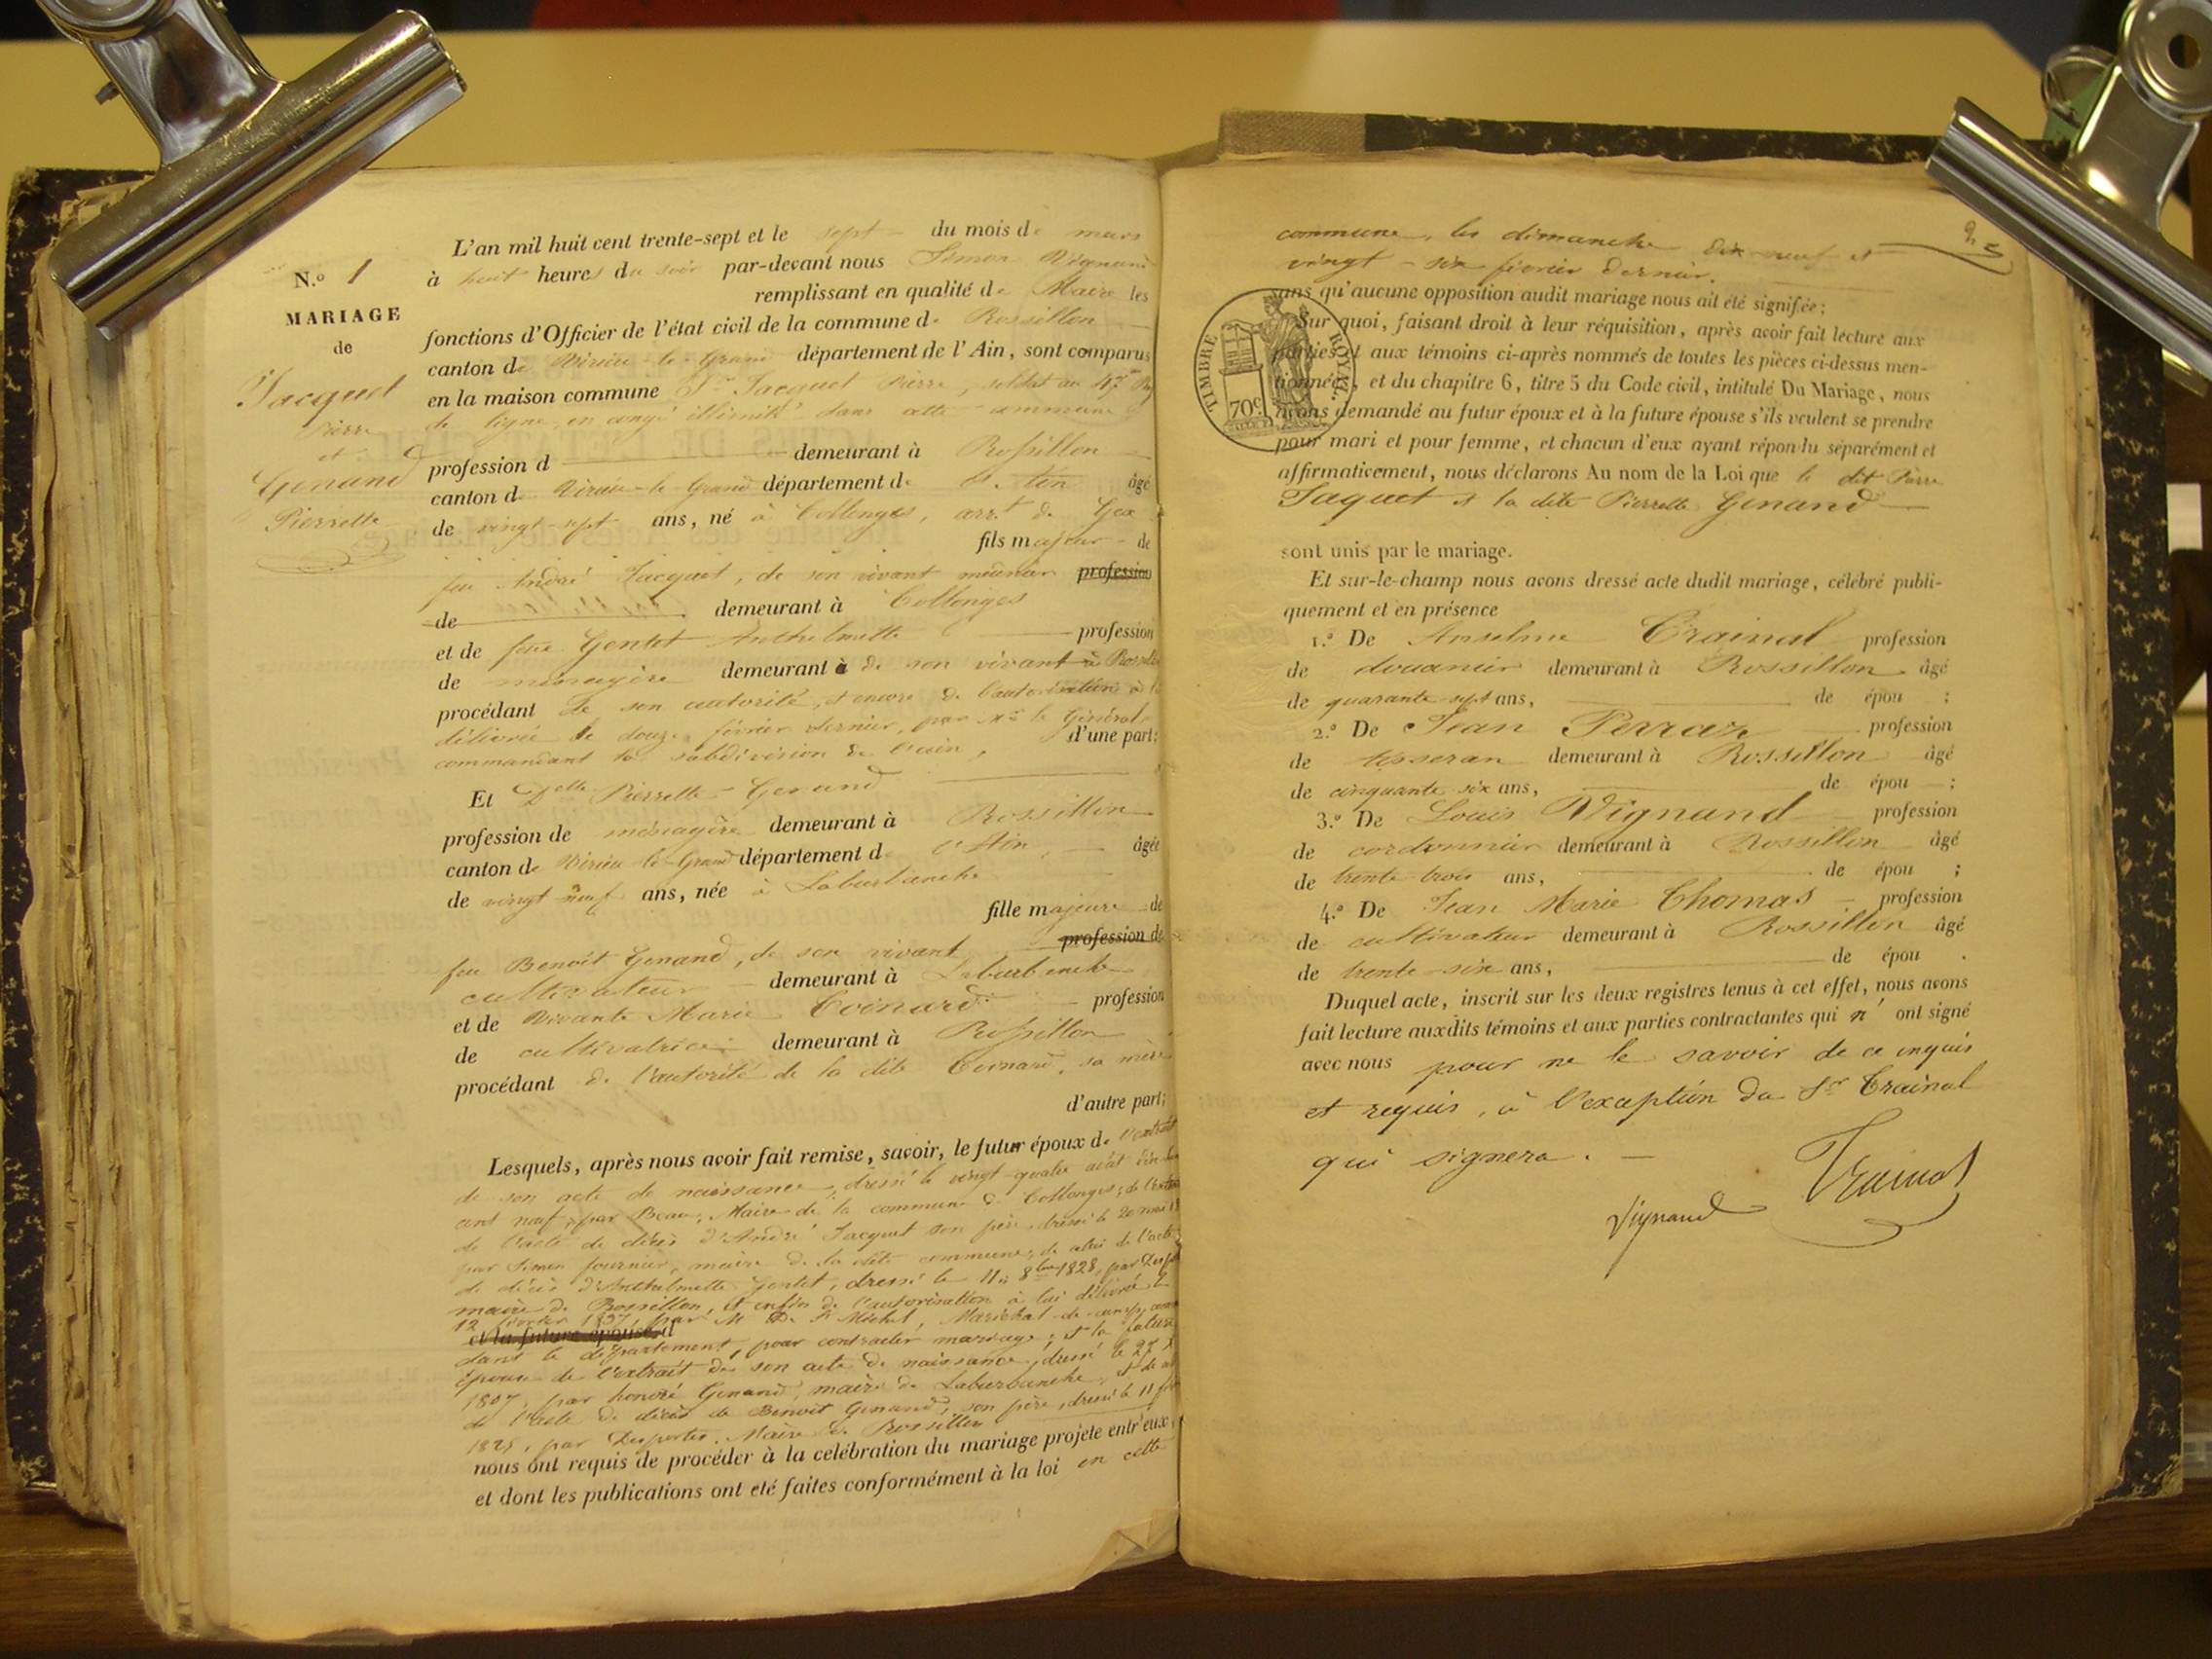 N.º 1
MARIAGE
de
Jacquet
Pierre
et
Genand
Pierrette
L'an mil huit cent trente-sept et le sept du mois de mars
à huit heures du soir par-devant nous Simon Vignand
remplissant en qualité de Maire les
fonctions d'Officier de l'état civil de la commune de Rossillon
canton de Virieu-le-Grand département de l'Ain, sont comparus
en la maison commune Sr Jacquet Pierre, soldat au 47e
de ligne, en congé illimité dans cette commune
profession d demeurant à Rossillon
canton de Virieu-le-Grand département de l'Ain âgé
de vingt-sept ans, né à Collonges, arrt de Gex
fils majeur de
feu André Jacquet, de son vivant meunier profession
de demeurant à Collonges
et de feue Gentet Anthelmette profession
de ménagère demeurant à de son vivant à Rossillon
procédant de son autorité, et encore de l'autorisation à lui
délivrée le douze février dernier, par Mr le Général
commandant la subdivision de l'ain, d'une part;
Et Delle Pierrette Genand
profession de ménagère demeurant à Rossillon
canton de Virieu-le-Grand département de l'Ain, âgée
de vingt neuf ans, née à Laburbanche
fille majeure de
feu Benoit Genand, de son vivant profession de
cultivateur demeurant à Laburbanche
et de vivante Marie Coinard profession
de cultivatrice demeurant à Rossillon
procédant de l'autorité de la dite Coinard, sa mère
d'autre part;
Lesquels, après nous avoir fait remise, savoir, le futur époux de l'extrait
de son acte de naissance, dressé le vingt-quatre août
cent neuf, par Beau, Maire de la commune de Collonges; de l'extrait
de l'acte de décès d'André Jacquet son père, dressé le 20 mai
par Simon fournier, maire de la dite commune; de celui de l'acte
de décès d'Anthelmette Gentet, dressé le 11 8bre 1828, par
maire de Rossillon, et enfin de l'autorisation à lui délivrée le
12 février 1837, par M. Michel, Maréchal-de-camp,
et la future épouse d
dans le département, pour contracter mariage; et la future
épouse de l'extrait de son acte de naissance, dressé le 27
1807, par honoré Genand, maire de Laburbanche, et de
de l'acte de décès de Benoit Genand, son père, dressé le 11
par Desportes, Maire de Rossillon
nous ont requis de procéder à la celébration du mariage projeté entr'eux
et dont les publications ont été faites conformément à la loi en cette
commune, les dimanche dix-neuf et
vingt-six février dernier.
sans qu'aucune opposition audit mariage nous ait été signifiée;
Sur quoi, faisant droit à leur réquisition, après avoir fait lecture aux
parties et aux témoins ci-après nommés de toutes les pièces ci-dessus men-
tionnées, et du chapitre 6, titre 5 du Code civil, intitulé Du Mariage, nous
avons demandé au futur époux et à la future épouse s'ils veulent se prendre
pour mari et pour femme, et chacun d'eux ayant répondu séparément et
affirmativement, nous déclarons Au nom de la Loi que le dit Pierre
Jaquet et la dite Pierrette Genand
sont unis par le mariage.
Et sur-le-champ nous avons dressé acte dudit mariage, célébré publi-
quement et en présence
1.º De Anselme Crainal profession
de douanier demeurant à Rossillon âgé
de quarante sept ans, de épou ;
2.º De Jean Perraz profession
de tisseran demeurant à Rossillon âgé
de cinquante six ans, de épou ;
3.º De Louis Vignand profession
de cordonnier demeurant à Rossillon âgé
de trente trois ans, de épou ;
4.º De Jean Marie Thomas profession
de cultivateur demeurant à Rossillon âgé
de trente-six ans, de épou .
Duquel acte, inscrit sur les deux registres tenus à cet effet, nous avons
fait lecture auxdits témoins et aux parties contractantes qui n' ont signé
avec nous pour ne le savoir de ce enquis
et requis, à l'exception du Sr Crainal
qui signera.
Vignand
Crainal
TIMBRE ROYAL
70c